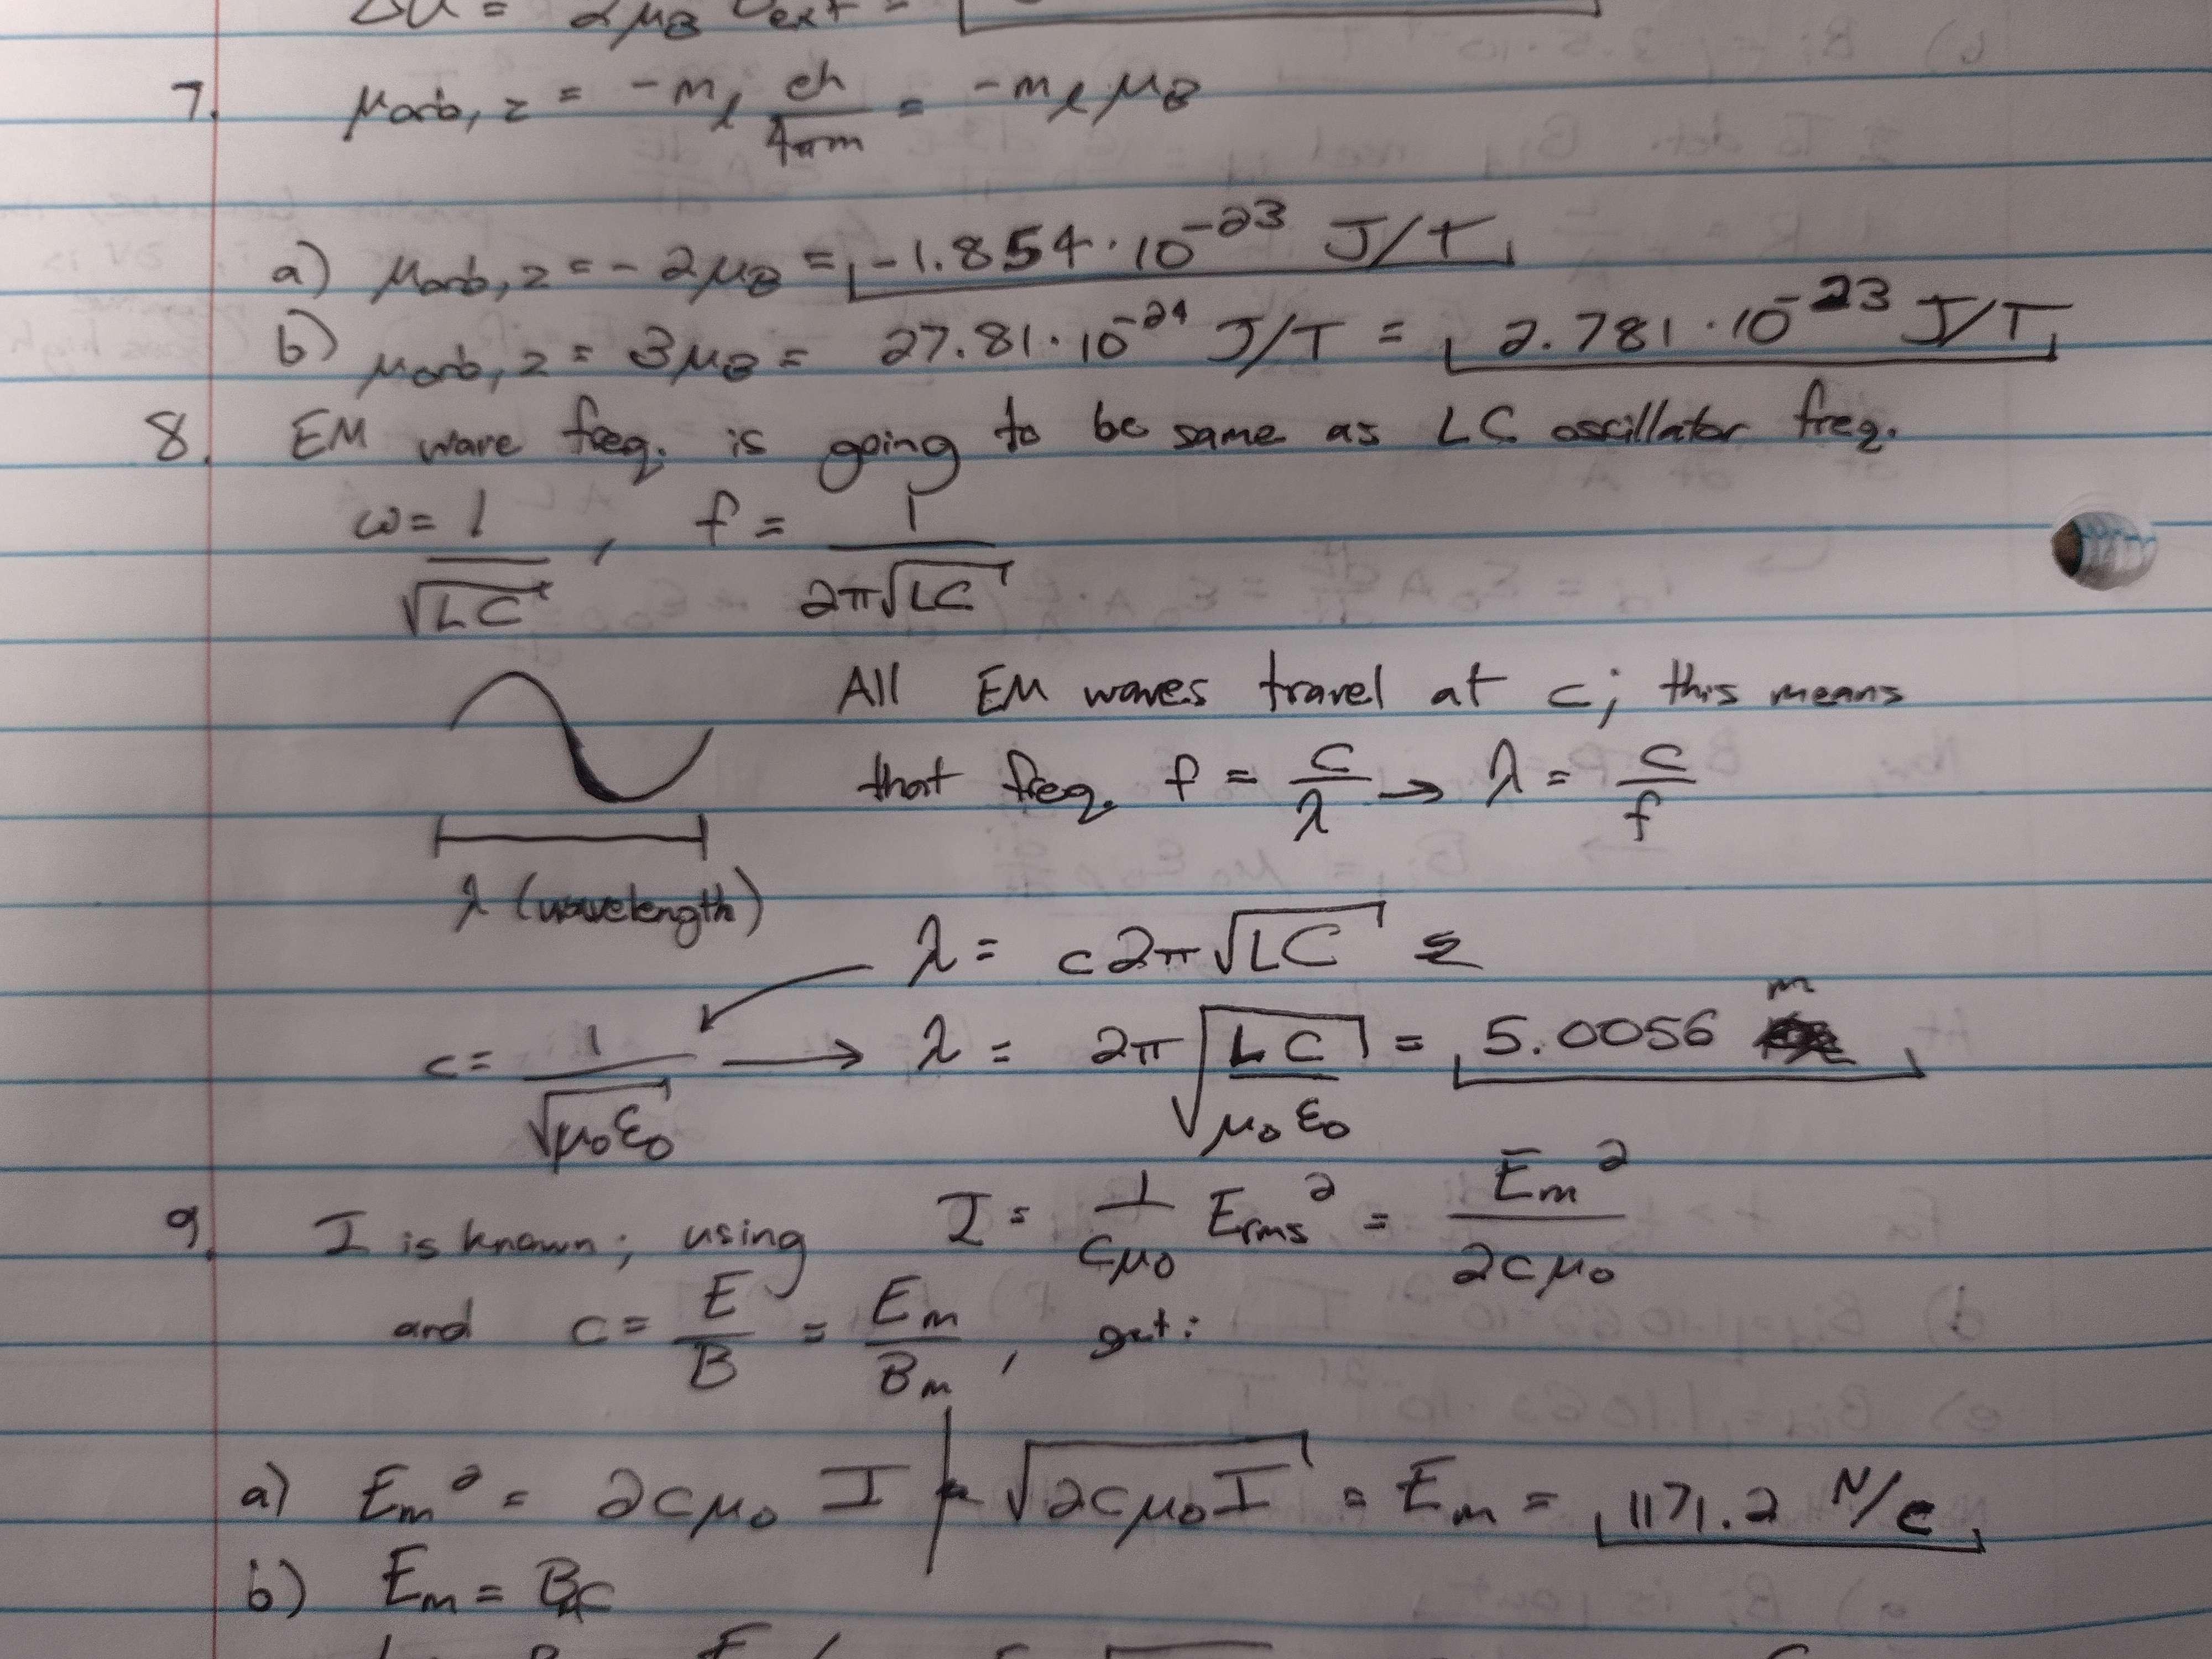 ΔU = 2μ_B B_ext =
7. μ_orb,z = -m_l eh/4πm = -m_l μ_B
a) μ_orb,z = -2μ_B = -1.854·10^-23 J/T
b) μ_orb,z = 3μ_B = 27.81·10^-24 J/T = 2.781·10^-23 J/T
8. EM wave freq. is going to be same as LC oscillator freq.
ω = 1/√LC , f = 1/2π√LC
All EM waves travel at c; this means
that freq. f = c/λ → λ = c/f
λ (wavelength)
λ = c2π√LC =
c = 1/√μ₀ε₀ → λ = 2π√(LC/μ₀ε₀) = 5.0056 m
9. I is known; using I = 1/cμ₀ E_rms² = E_m²/2cμ₀
and c = E/B = E_m/B_m , get:
a) E_m² = 2cμ₀ I √2cμ₀I = E_m = 1171.2 N/C
b) E_m = Bc